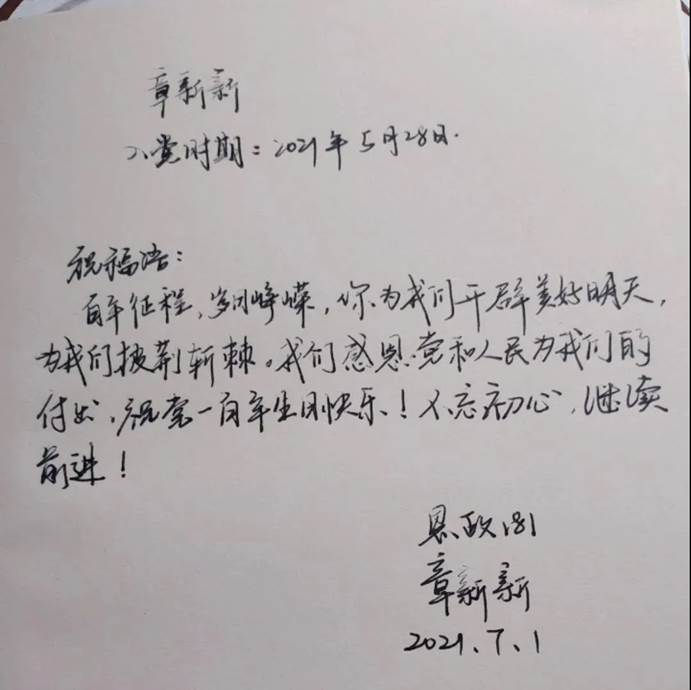 章新新
入党时期：2021年5月28日.
祝福语：
百年征程，岁月峥嵘，你为我们开辟美好明天，
为我们披荆斩棘。我们感恩党和人民为我们的
付出，祝党一百年生日快乐！不忘初心，继续
前进！
思政181
章新新
2021.7.1